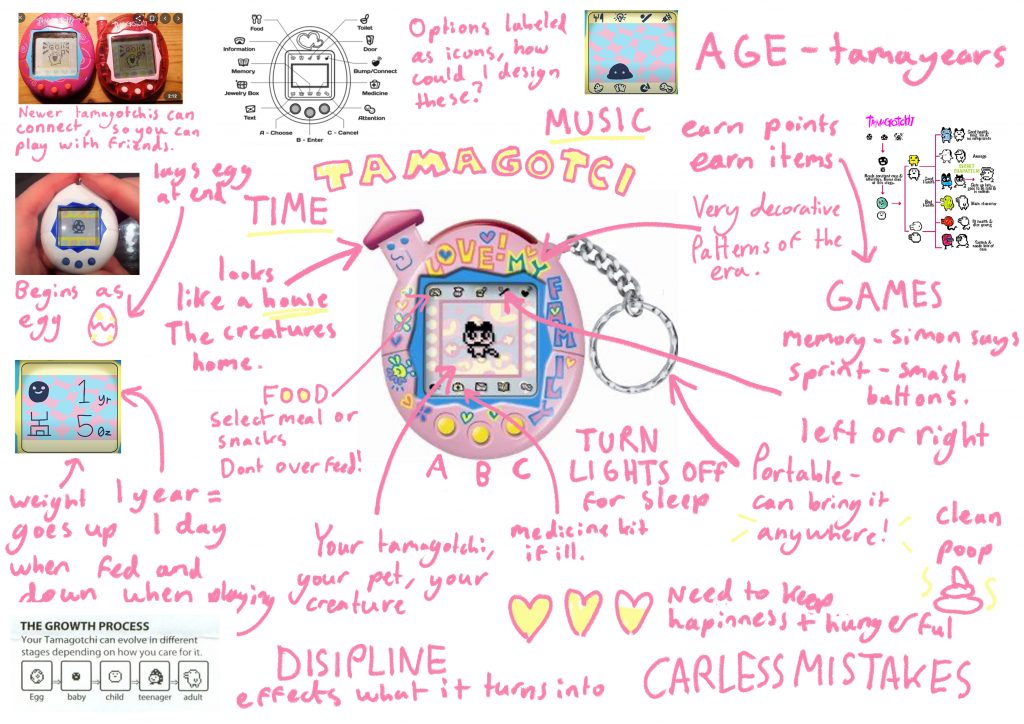 TAMAGOTCHI
TAMAGOTCHI
2:12
Newer tamagotchis can
connect, so you can
play with friends.
Food
Information
Memory
Jewelry Box
Text
Toilet
Door
Bump/Connect
Medicine
Attention
A - Choose
B - Enter
C - Cancel
Options labeled
as icons, how
could I design
these?
AGE - tamayears
MUSIC
earn points
earn items
TAMAGOTCHI
TAMAGOTCI
lays egg
at end
TIME
Begins as
egg
looks
like a house
The creatures
home.
LOVE! MY
FAMILY
Very decorative
Patterns of the
era.
GAMES
memory - simon says
sprint - smash
buttons.
left or right
1 yr
5 oz
FOOD
select meal or
snacks
Dont overfeed!
A B C
TURN
LIGHTS OFF
for sleep
Portable -
can bring it
anywhere!
weight
goes up
when fed and
down when playing
1 year =
1 day
Your tamagotchi,
your pet, your
creature
medicine kit
if ill.
clean
poop
Need to keep
hapinness + hungerful
THE GROWTH PROCESS
Your Tamagotchi can evolve in different
stages depending on how you care for it.
Egg
baby
child
teenager
adult
DISIPLINE
effects what it turns into
CARLESS MISTAKES